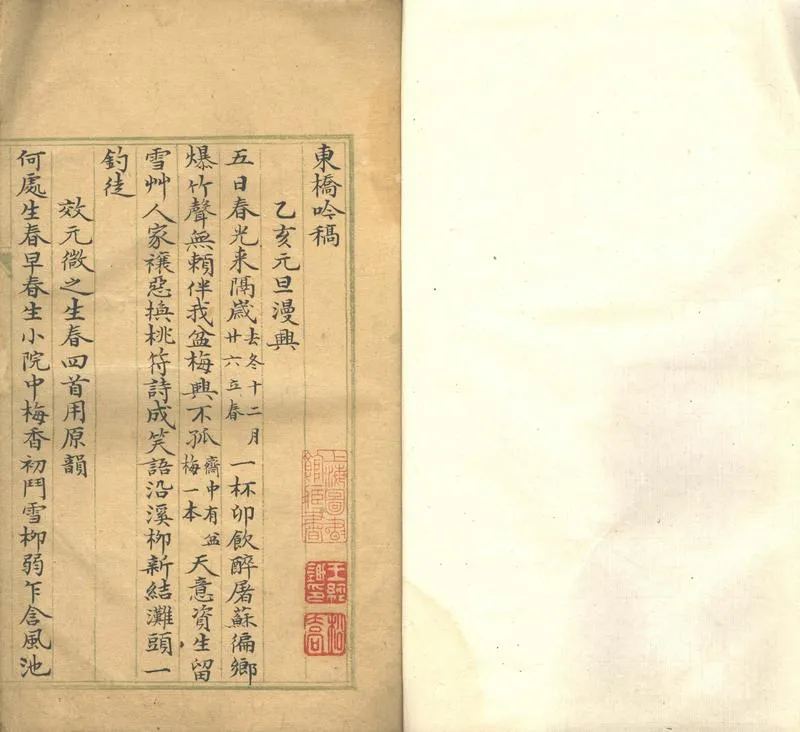 東橋吟稿
乙亥元旦漫興
五日春光来隔歲去冬十二月廿六立春一杯卯飲醉屠蘇徧鄉
爆竹聲無賴伴我盆梅興不孤齋中有盆梅一本天意資生留
雪艸人家禳惡換桃符詩成笑語沿溪柳新結灘頭一
釣徒
效元微之生春四首用原韻
何處生春早春生小院中梅香初鬥雪柳弱乍含風池
上海圖書館藏書